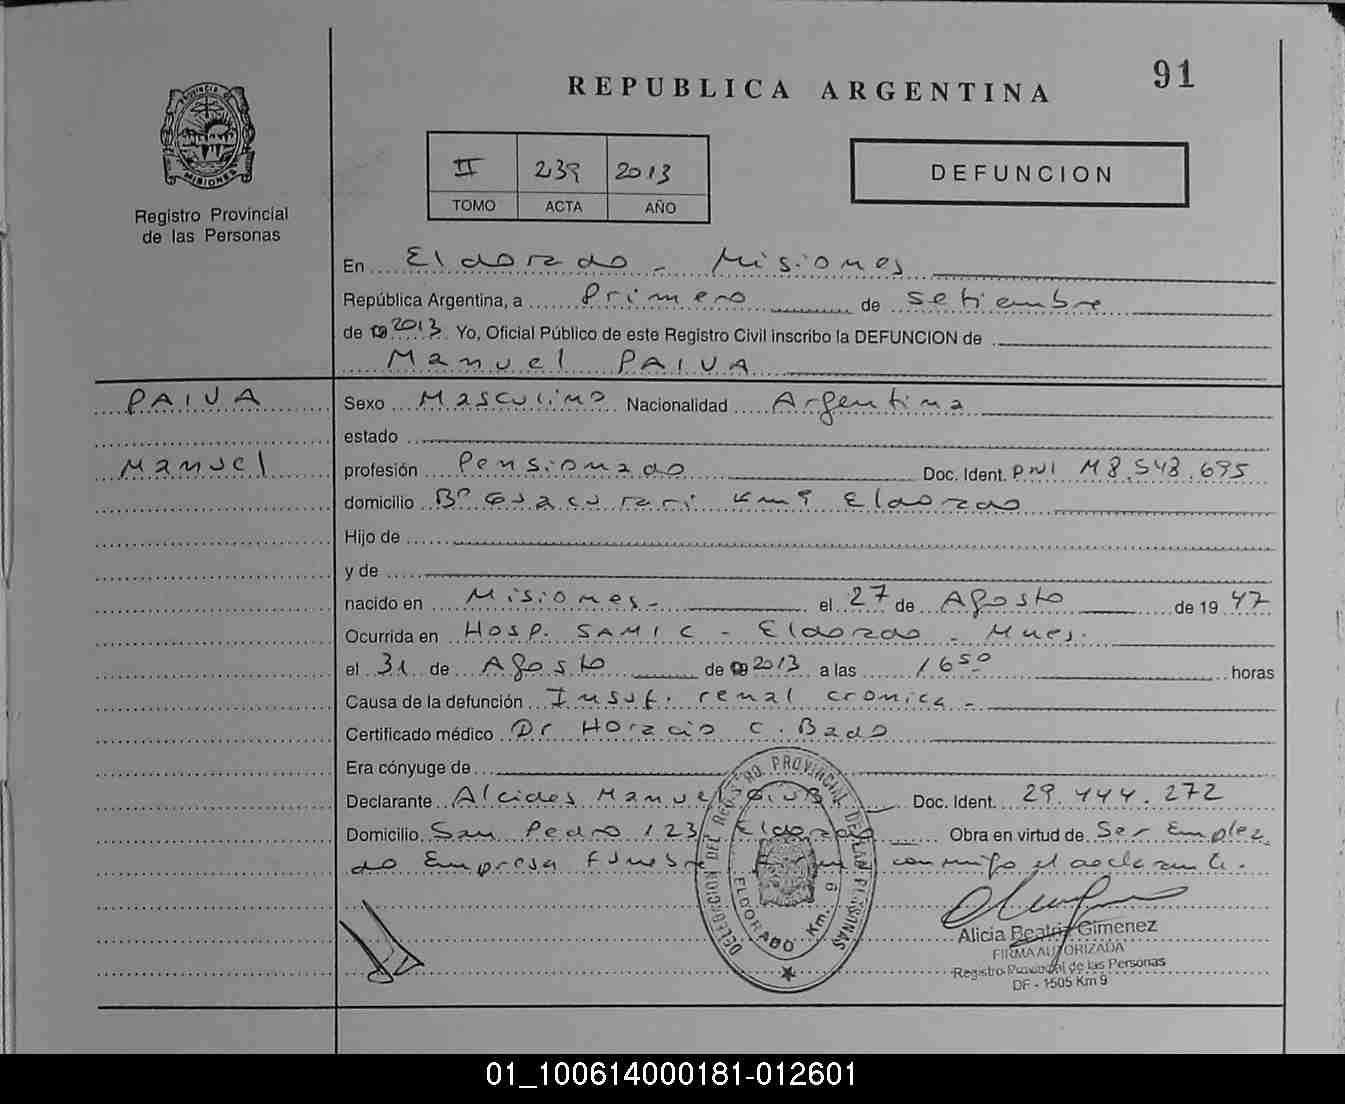 91
REPUBLICA ARGENTINA
PROVINCIA DE
MISIONES
Registro Provincial
de las Personas
II 239 2013
TOMO ACTA AÑO
DEFUNCION
En Eldorado - Misiones
República Argentina, a Primero de Setiembre
de 2013. Yo, Oficial Público de este Registro Civil inscribo la DEFUNCION de
Manuel PAIVA
PAIVA
Manuel
Sexo Masculino Nacionalidad Argentina
estado
profesión Pensionado Doc. Ident. DNI M8.548.695
domicilio Bº Guacurari Km 9 Eldorado
Hijo de
y de
nacido en Misiones - el 27 de Agosto de 19 47
Ocurrida en Hosp. SAMIC - Eldorado - Mnes.
el 31 de Agosto de 2013 a las 16 50 horas
Causa de la defunción Insuf. renal cronica -
Certificado médico Dr Horacio C. Bado
Era cónyuge de
Declarante Alcides Manuel Doc. Ident. 29.444.272
Domicilio San Pedro 123 Eldorado Obra en virtud de Ser Emplea
do Empresa Funebre conmigo el declarante.
DELEGACION DEL REGISTRO PROVINCIAL DE LAS PERSONAS
ELDORADO Km. 9
Alicia Beatriz Gimenez
FIRMA AUTORIZADA
Registro Provincial de las Personas
DF - 1505 Km 9
01_100614000181-012601